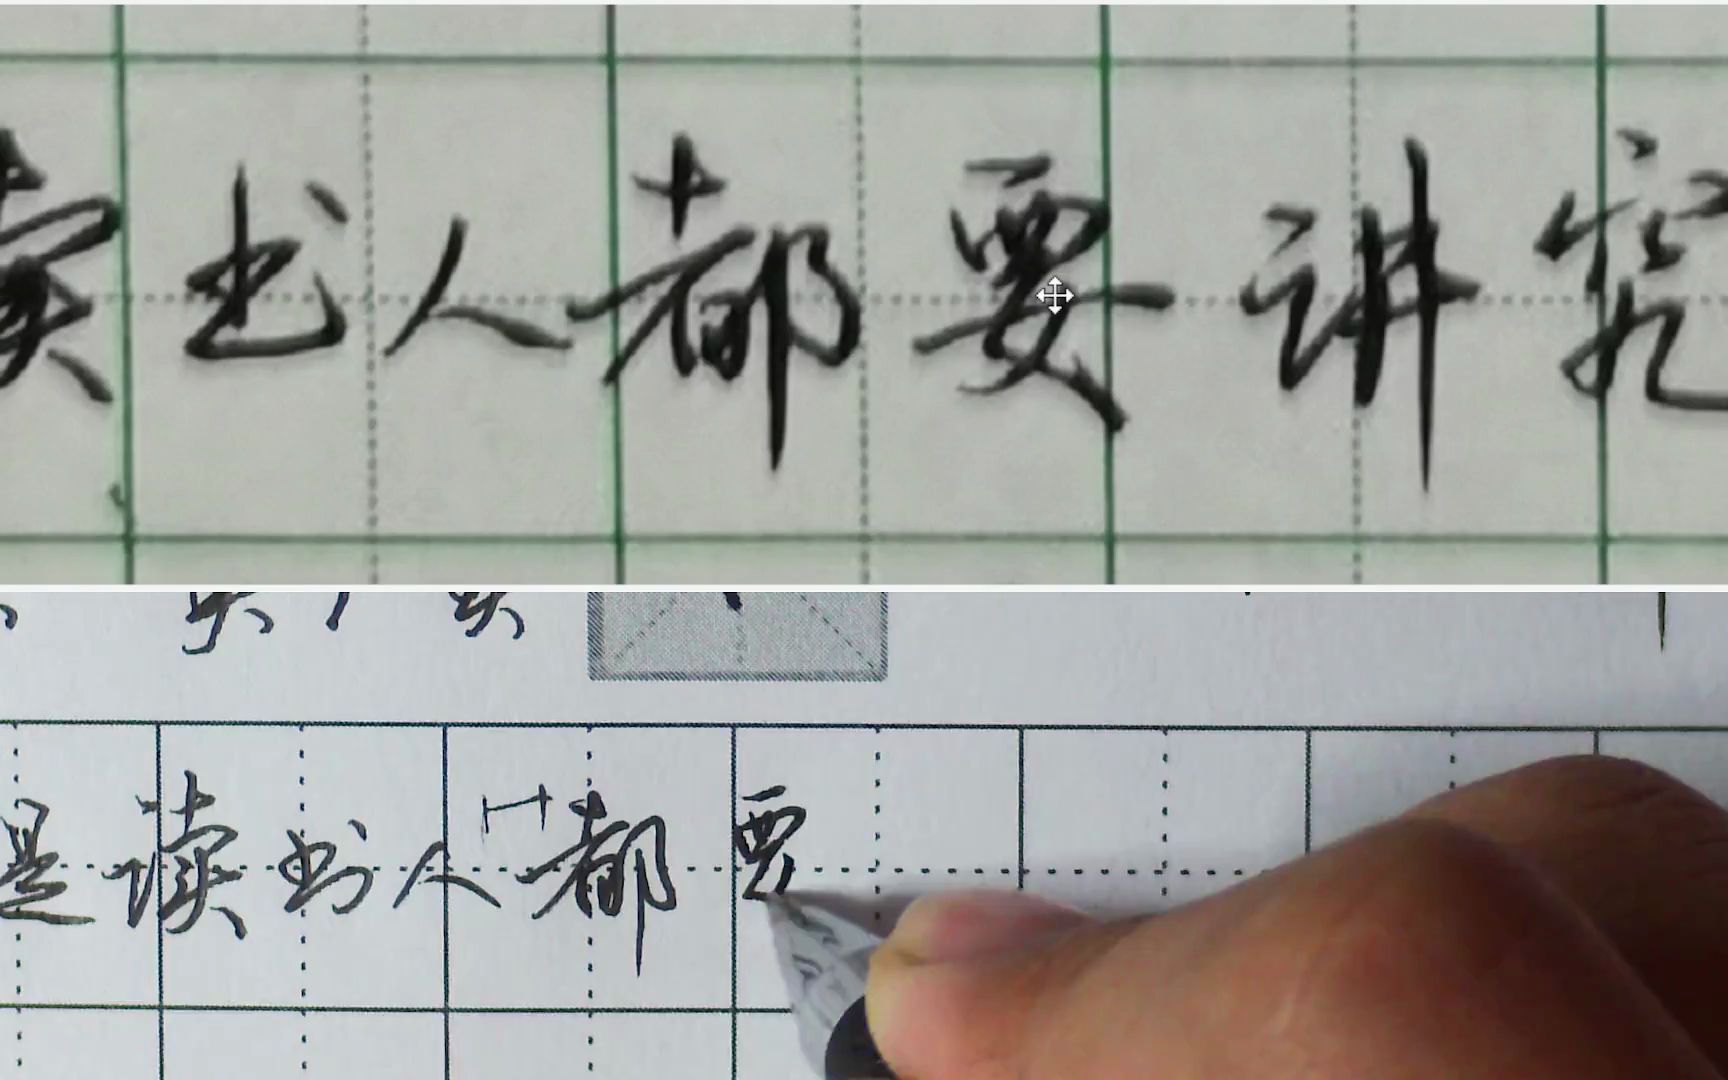 读书人都要讲究
是读书人都要